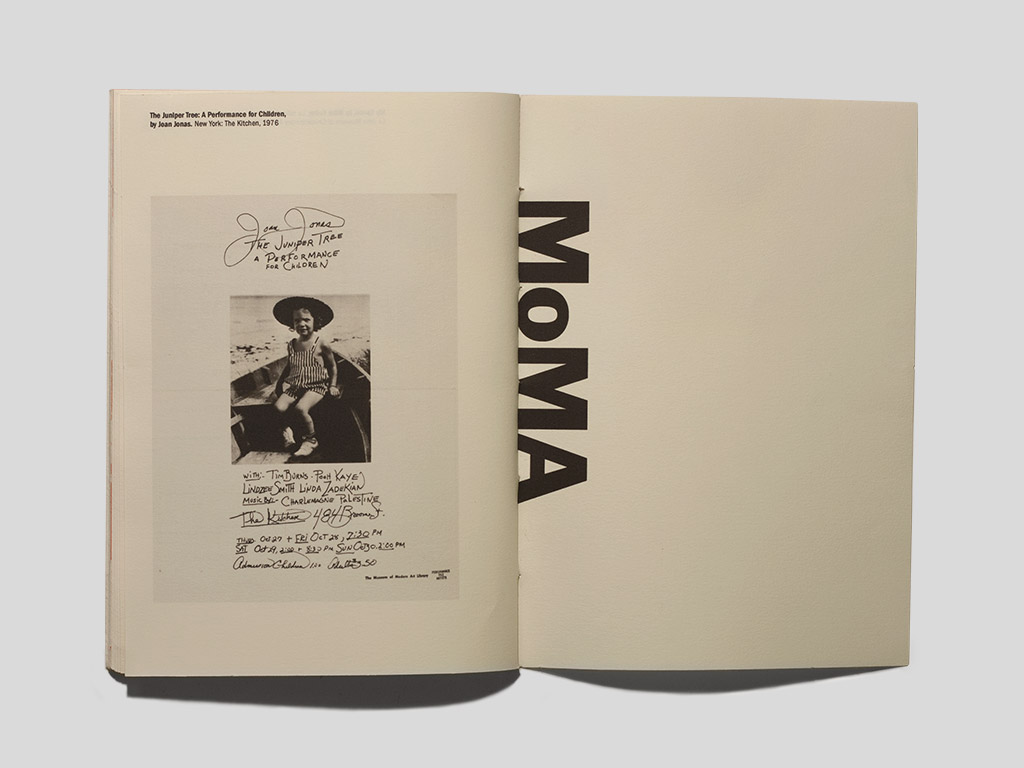 The Juniper Tree: A Performance for Children,
by Joan Jonas. New York: The Kitchen, 1976
Joan Jonas
THE JUNIPER TREE
A PERFORMANCE
FOR CHILDREN
WITH:- TIM BURNS - POOH KAYE
LINDZEE SMITH LINDA ZADEKIAN
MUSIC BY:- CHARLEMAGNE PALESTINE
The Kitchen 484 Broome St.
THURS Oct 27 + FRI OCT 28, 7:30 PM
SAT Oct 29, 2:00 + 8:30 PM SUN Oct 30. 2:00 PM
Admission Children 1.00 Adults 3.50
The Museum of Modern Art Library
MoMA